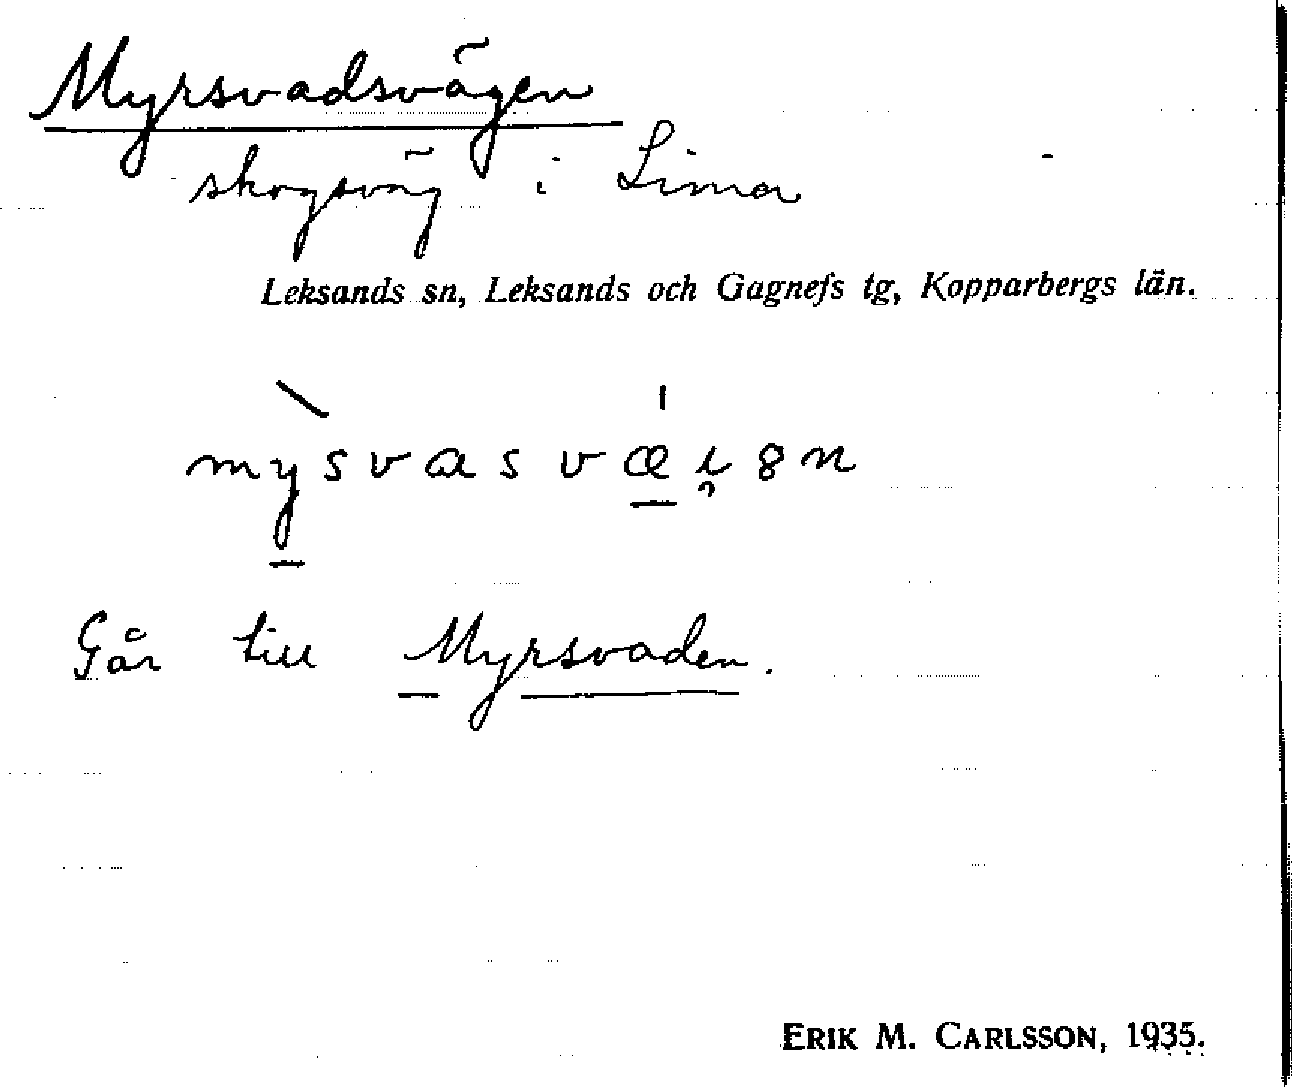 Myrsvadsvägen
skogsväg i Lima
Leksands sn, Leksands och Gagnefs tg, Kopparbergs län.
mysvasvæi̯8n
Går till Myrsvaden.
ERIK M. CARLSSON, 1935.